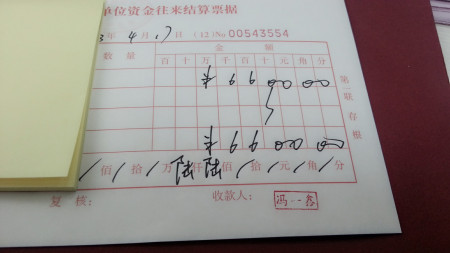 单位资金往来结算票据
3 年 4 月 17 日 (12) No 00543554
数 量 金 额
百 十 万 千 百 十 元 角 分
¥ 6 6 0 0 0 0
¥ 6 6 0 0 0 0
佰 / 拾 / 万 陆 仟 陆 佰 / 拾 / 元 / 角 / 分
第一联 存根
复 核: 收款人: